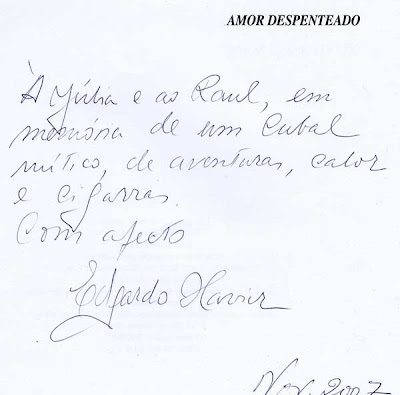 AMOR DESPENTEADO
À Júlia e ao Raul, em
memória de um Cubal
mítico, de aventuras, calor
e cigarras.
Com afecto
Edgardo Xavier
Nov. 2007